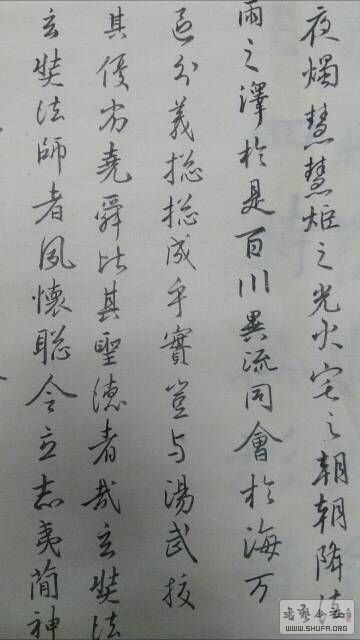 夜燭慧慧炬之光火宅之朝朝降法
雨之澤於是百川異流同會於海万
區分義揔揔成乎實豈与湯武挍
其優劣堯舜比其聖德者哉玄奘法
玄奘法師者夙懷聰令立志夷簡神
WWW.SHUFA.ORG